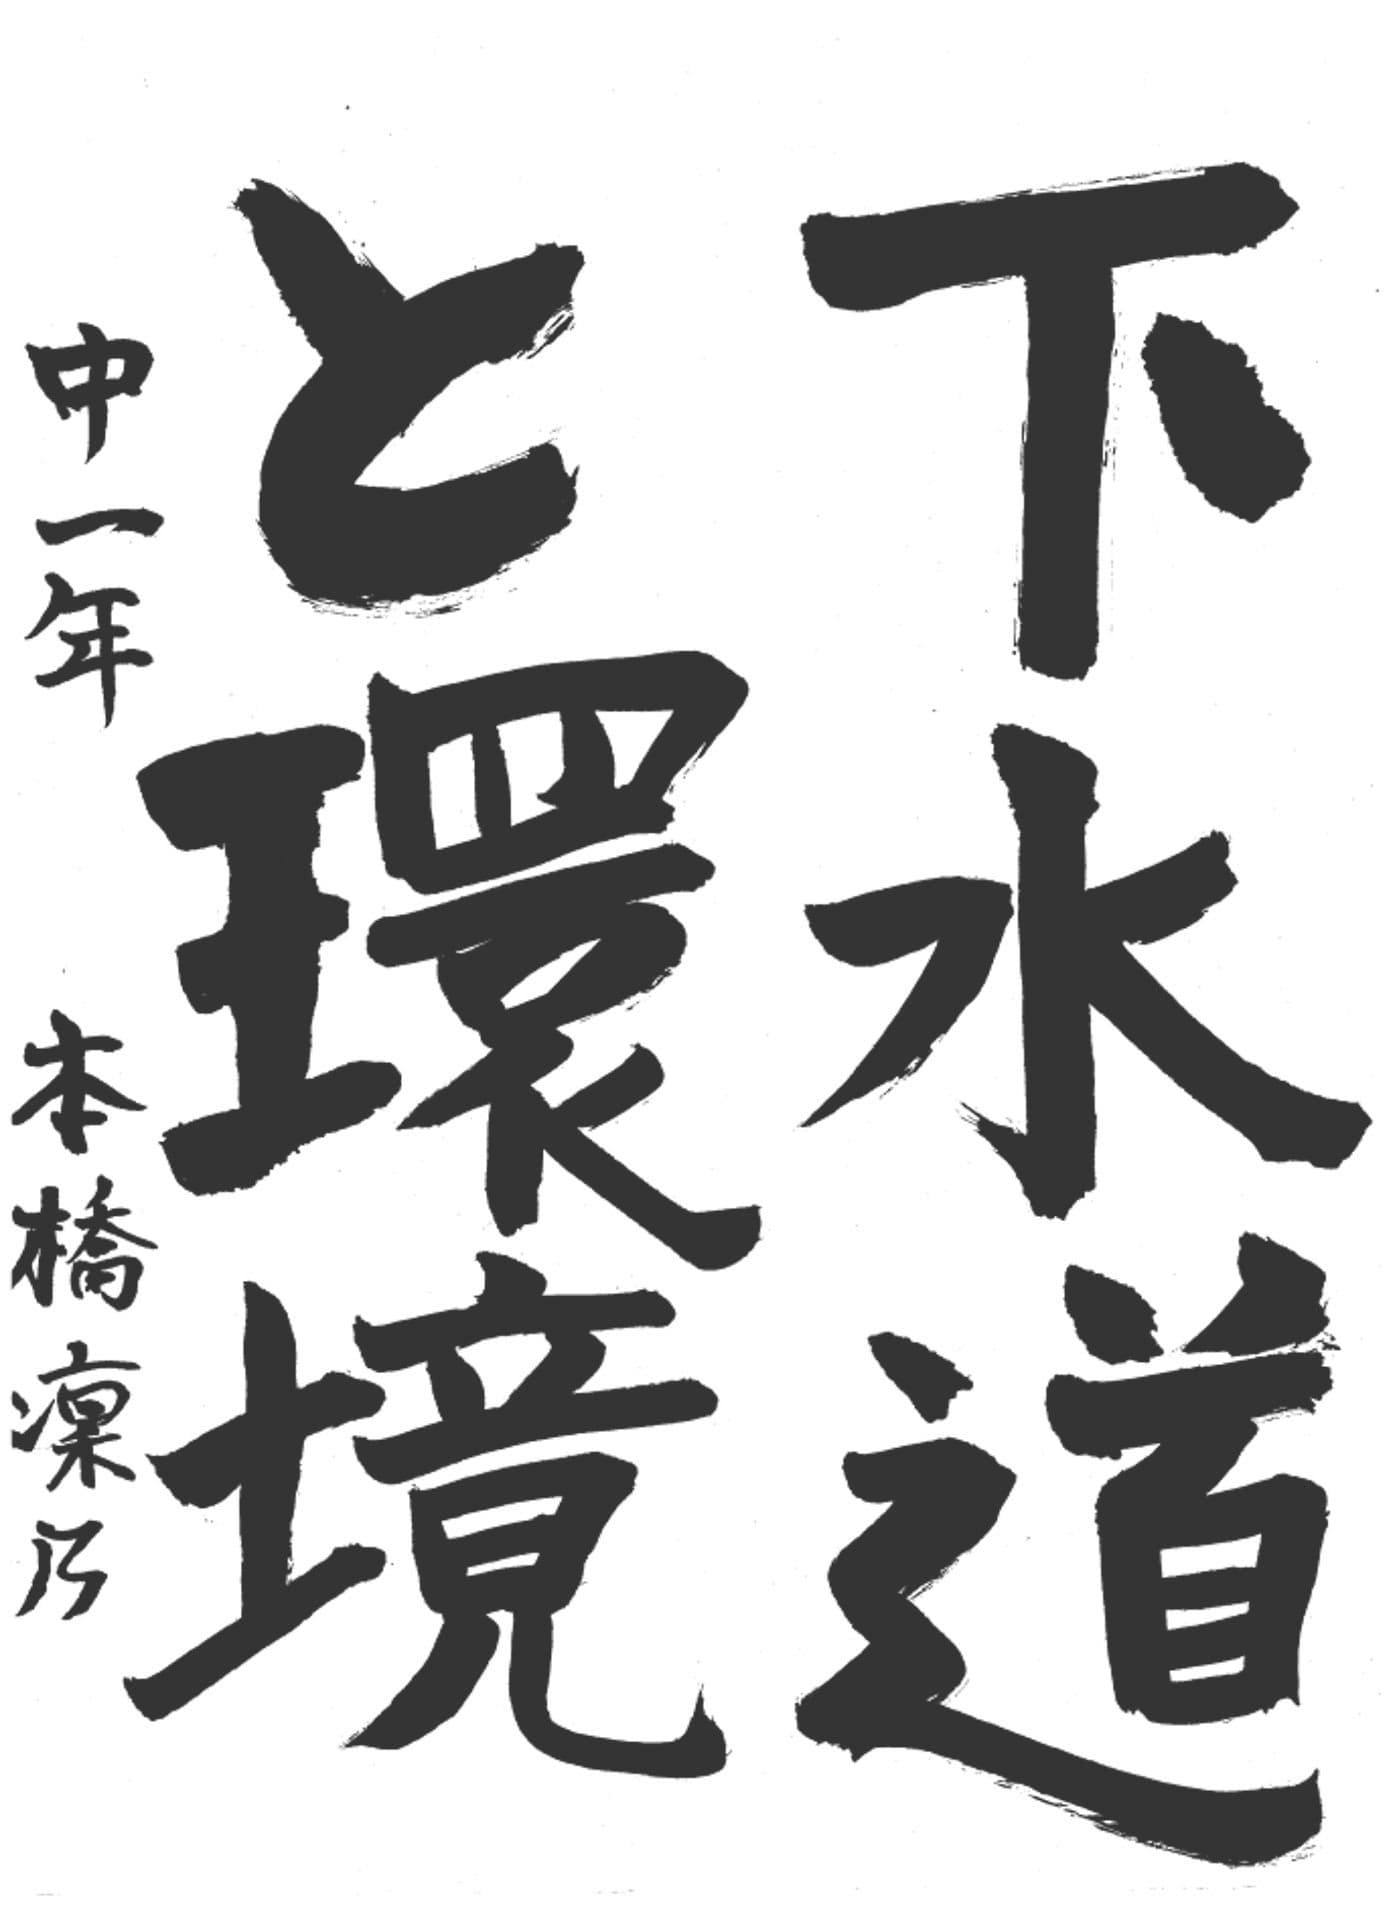 下水道
と環境
中一年 本橋凜乃